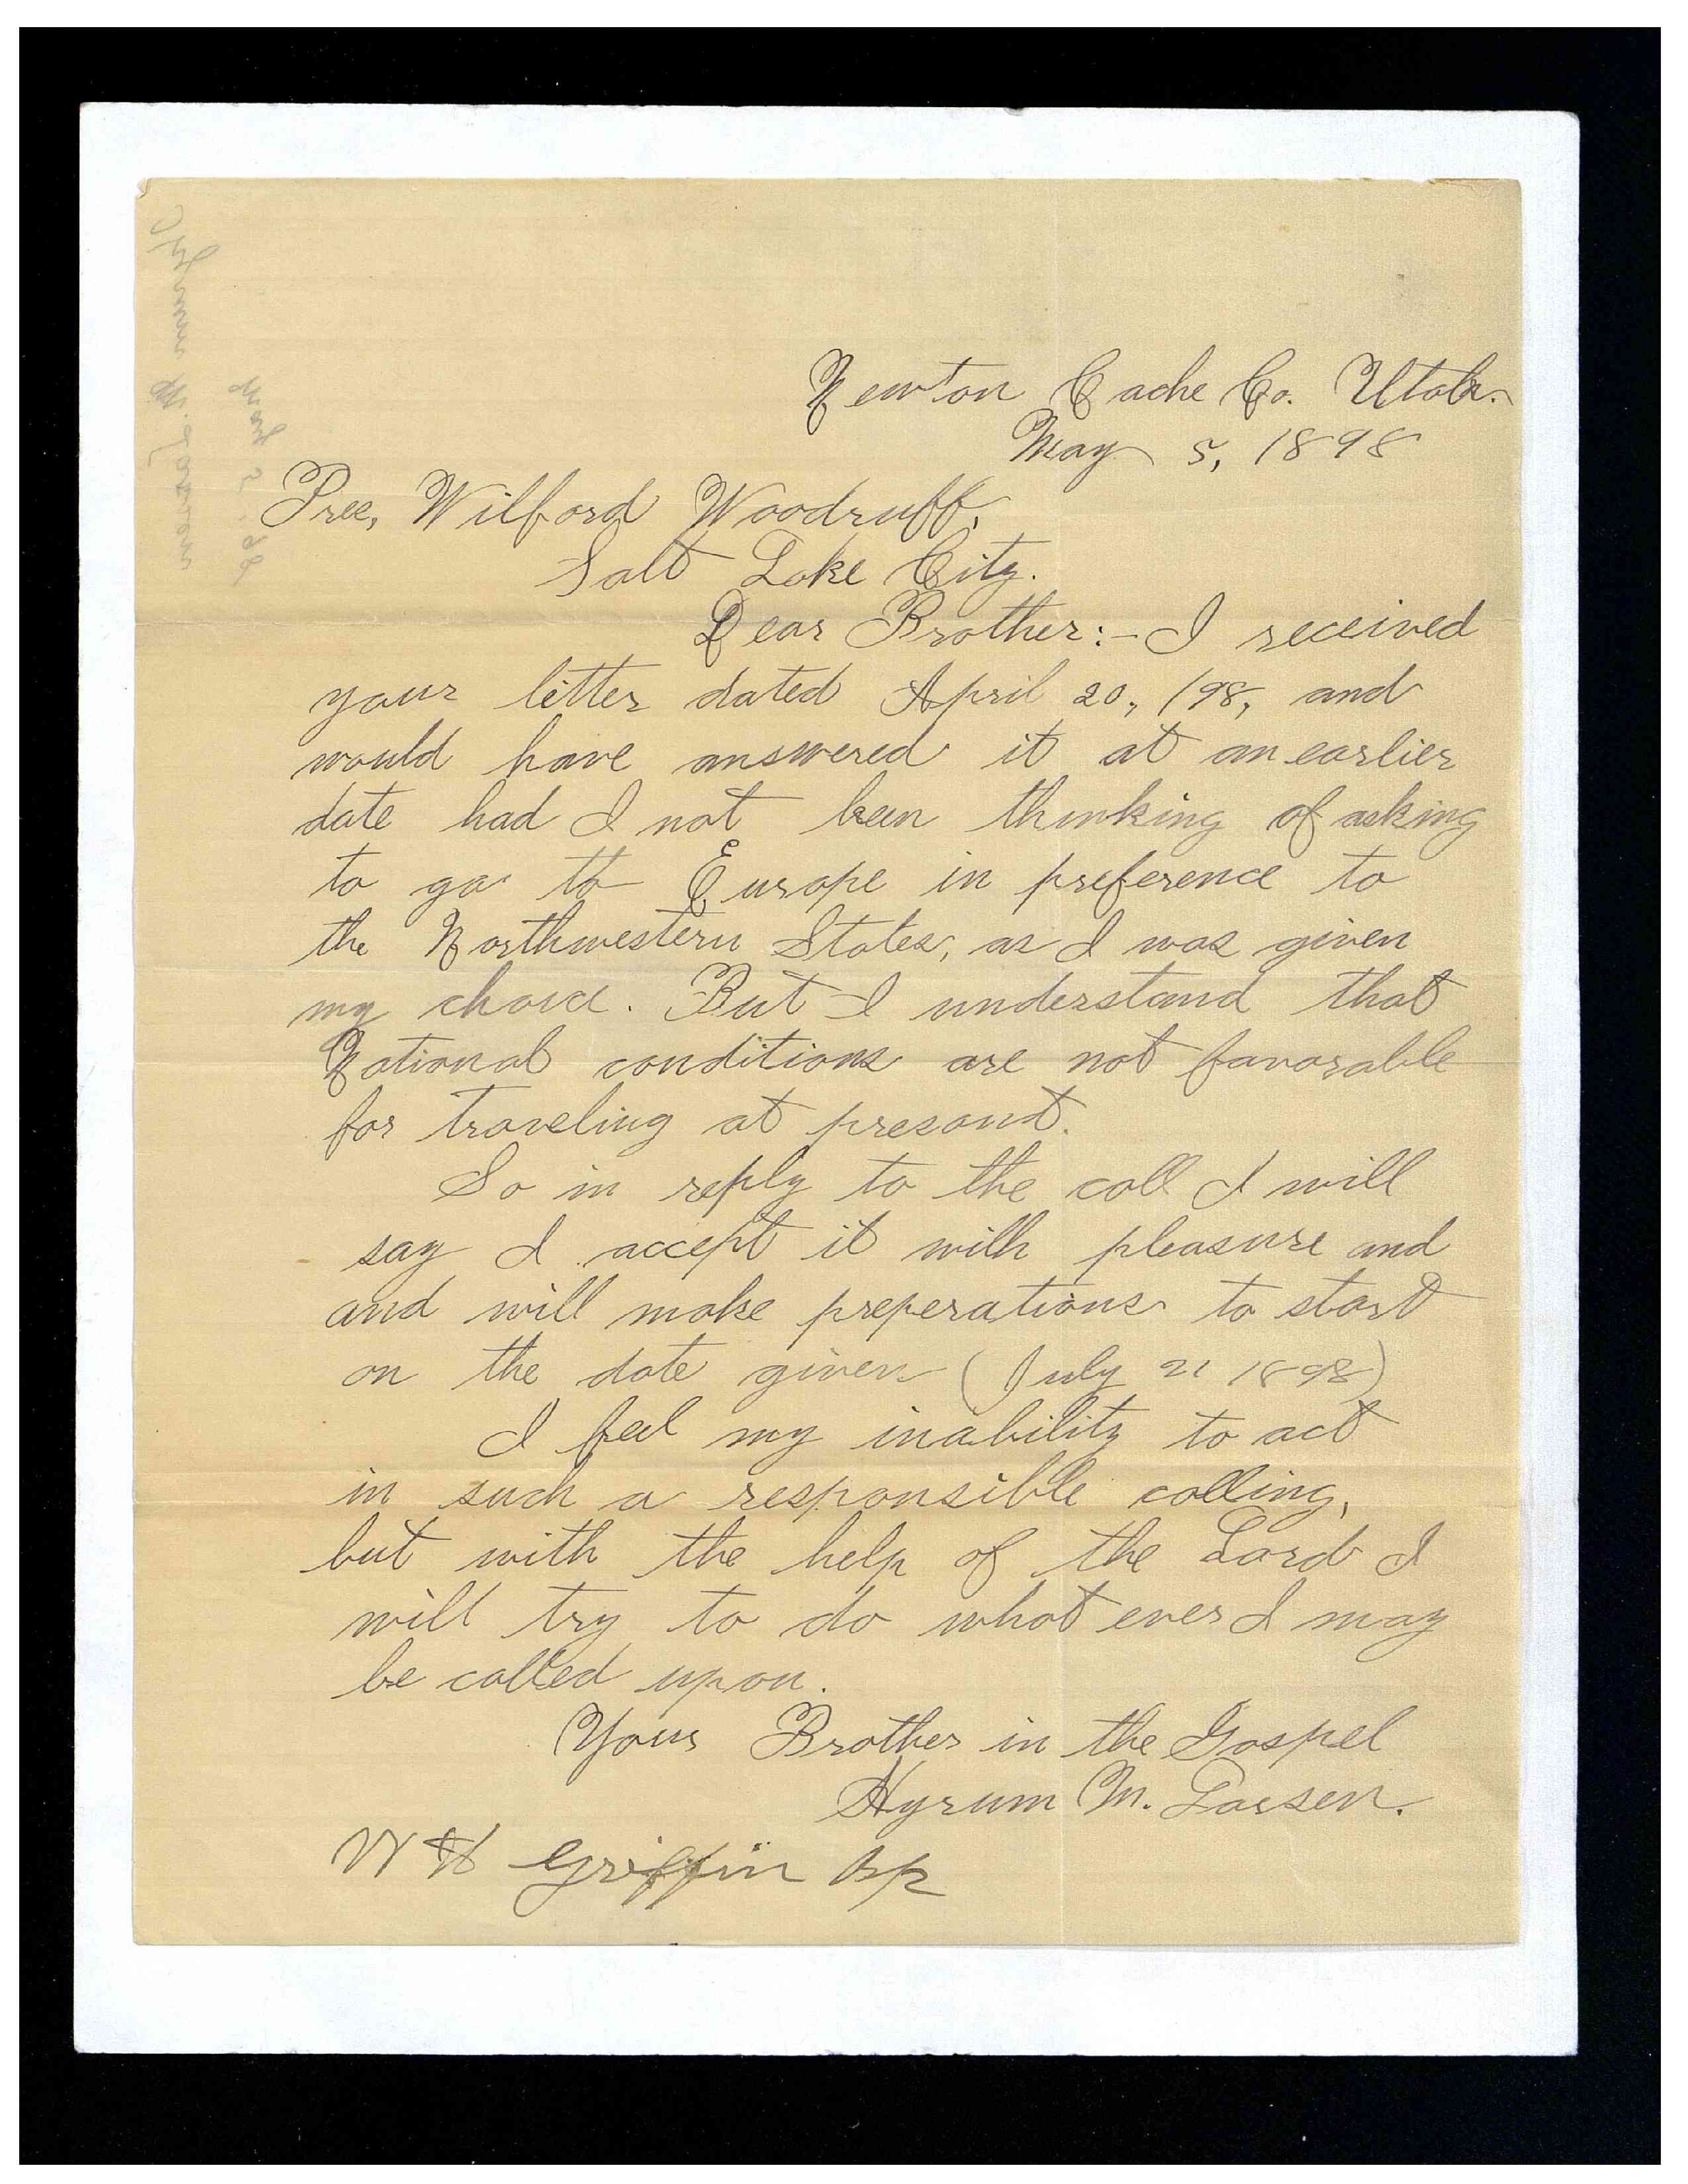 Newton Cache Co. Utah.
May 5, 1898
Pres, Wilford Woodruff,
Salt Lake City.
Dear Brother:- I received
your letter dated April 20, /98, and
would have answered it at an earlier
date had I not been thinking of asking
to go to Europe in preference to
the Northwestern States, as I was given
my choice. But I understand that
National conditions are not favorable
for traveling at presant.
So in reply to the call I will
say I accept it with pleasure and
and will make preperations to start
on the date given (July 21 1898)
I feel my inability to act
in such a responsible calling,
but with the help of the Lord I
will try to do what ever I may
be called upon.
Your Brother in the Gospel
Hyrum M. Larsen.
W H Griffin Bp
Hyrum M. Larsen
May 5. 98